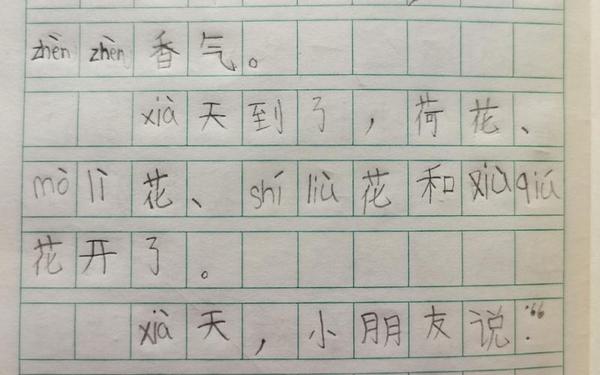 zhèn zhèn 香气。
xià天到了，荷花、
mò lì 花、shí liù 花和 xiù qiú
花开了。
xià天，小朋友说：“